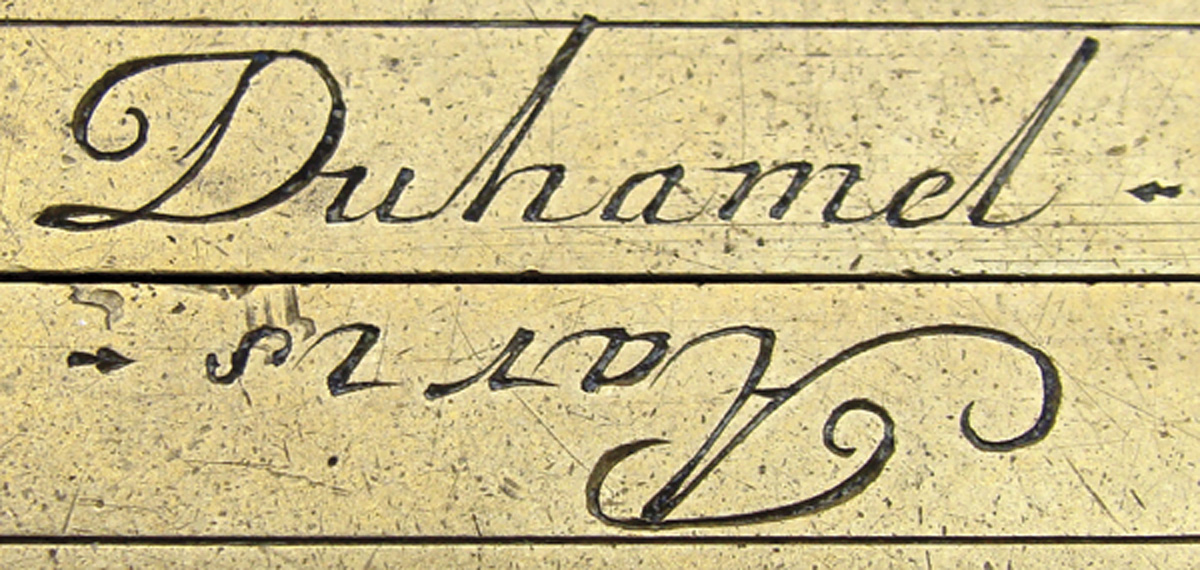 Duhamel
Paris